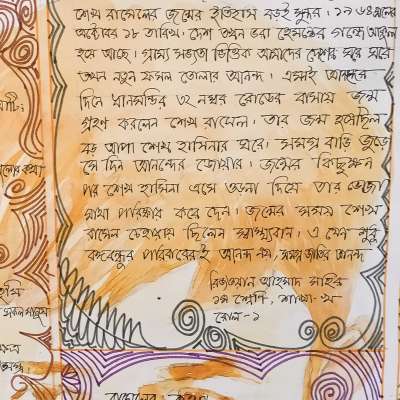 শেখ রাসেলের জন্মের ইতিহাস বড়ই সুন্দর। ১৯৬৪ সালের
অক্টোবর ১৮ তারিখ। দেশ তখন ভরা হেমন্তের গন্ধে আকুল
হয়ে আছে। গ্রাম্য সভ্যতা ভিত্তিক আমাদের দেশের ঘরে ঘরে
তখন নতুন ফসল তোলার আনন্দ। এমনই আনন্দের
দিনে ধানমন্ডির ৩২ নম্বর রোডের বাসায় জন্ম
গ্রহণ করলেন শেখ রাসেল। তার জন্ম হয়েছিল
বড় আপা শেখ হাসিনার ঘরে। সমস্ত বাড়ি জুড়ে
সে দিন আনন্দের জোয়ার। জন্মের কিছুক্ষন
পর শেখ হাসিনা এসে ওড়না দিয়ে তার ভেজা
মাথা পরিষ্কার করে দেন। জন্মের সময় শেখ
রাসেল চেহারায় ছিলেন স্বাস্থ্যবান। এ যেন শুধু
বঙ্গবন্ধুর পরিবারেরই আনন্দ নয়, সমগ্র জাতির আনন্দ
রিজওয়ান আহমাদ মাহির
১ম শ্রেণি, শাখা-খ
রোল-১
রাসেলের